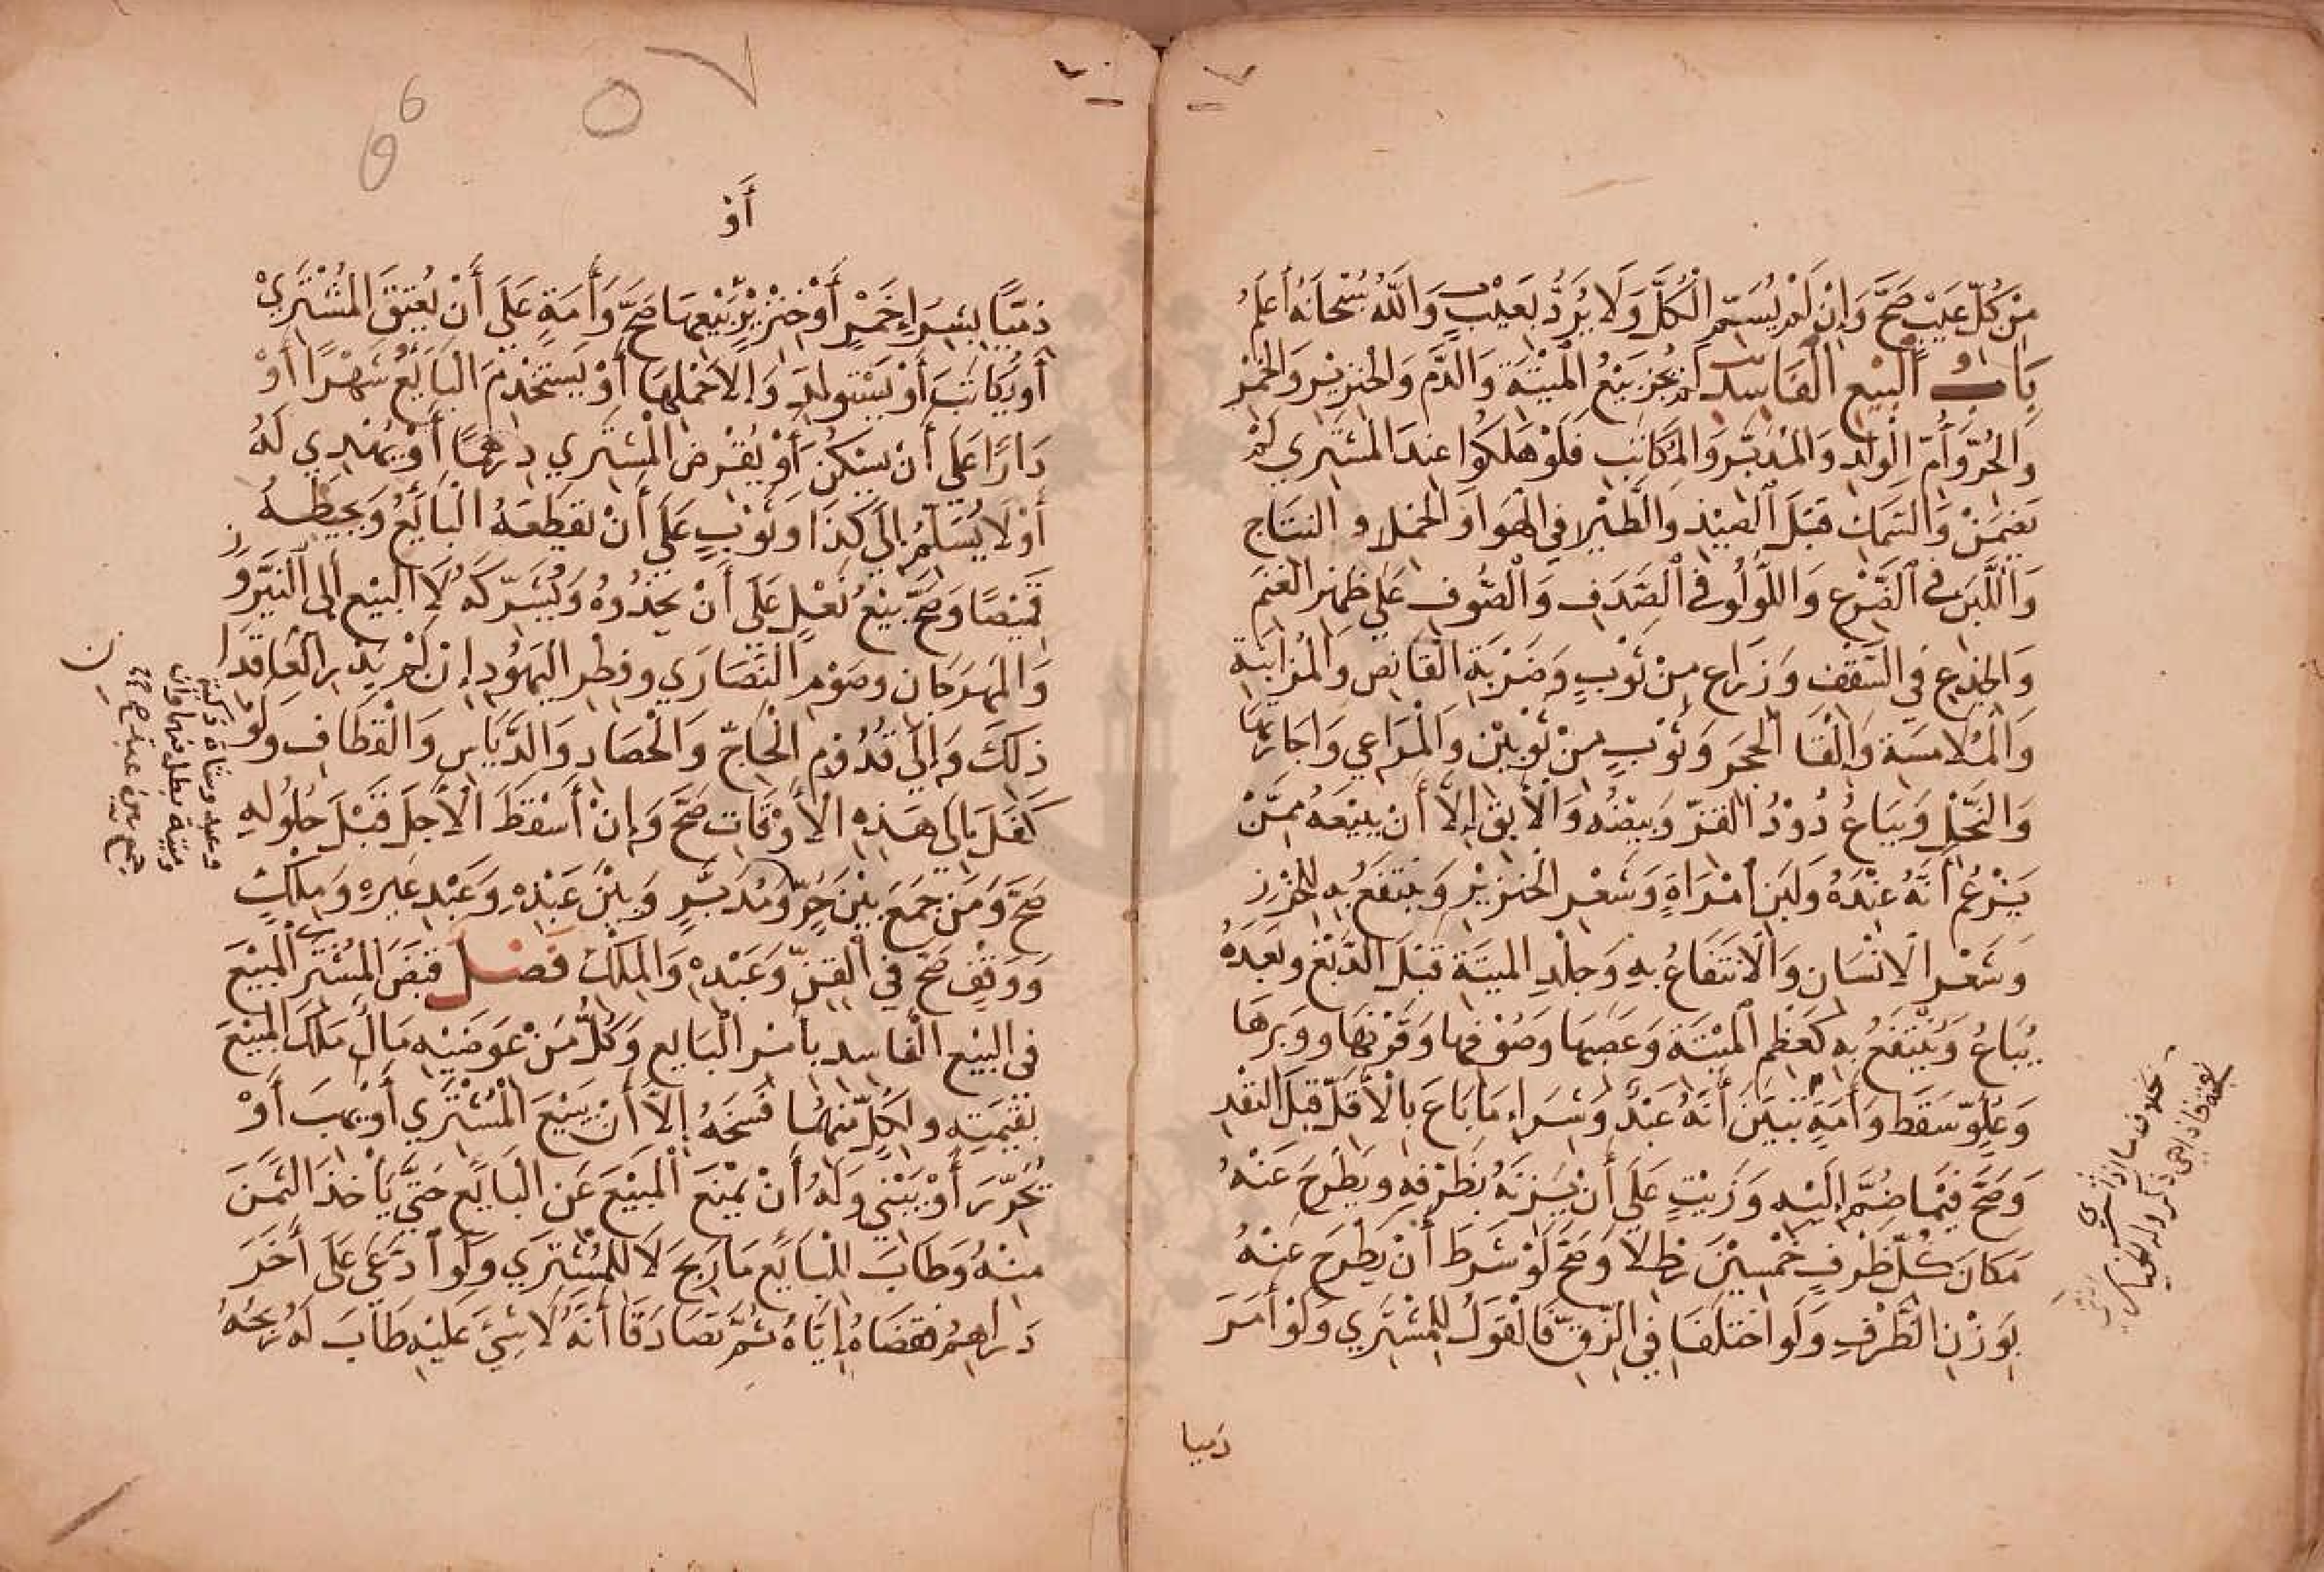 مِنْ كُلِّ عَيْبٍ صَحَّ وَإِنْ لَمْ يُسَمِّ الْكُلَّ وَلَا يُرَدُّ بِعَيْبٍ وَاللهُ سُبْحَانَهُ أَعْلَمُ
بَابُ الْبَيْعِ الْفَاسِدِ لَمْ يَجُزْ بَيْعُ الْمَيْتَةِ وَالدَّمِ وَالْخِنْزِيْرِ وَالْخَمْرِ
وَالْحُرِّ وَأُمِّ الْوَلَدِ وَالْمُدَبَّرِ وَالْمُكَاتَبِ فَلَوْ هَلَكُوا عِنْدَ الْمُشْتَرِي لَمْ
يَضْمَنْ وَالسَّمَكِ قَبْلَ الصَّيْدِ وَالطَّيْرِ فِي الْهَوَا وَالْحَمْلِ وَالنِّتَاجِ
وَاللَّبَنِ فِي الضَّرْعِ وَاللُّوْلُوِ فِي الصَّدَفِ وَالصُّوفِ عَلَى ظَهْرِ الْغَنَمِ
وَالْجِذْعِ فِي السَّقْفِ وَزِرَاعٍ مِنْ ثَوْبٍ وَضَرْبَةِ الْقَانِصِ وَالْمُزَابَنَةِ
وَالْمُلَامَسَةِ وَإِلْقَا الْحَجَرِ وَثَوْبٍ مِنْ ثَوْبَيْنِ وَالْمَرَاعِي وَإِجَارَتِهَا
وَالنَّحْلِ وَيُبَاعُ دُوْدُ الْقَزِّ وَبَيْضُهُ وَالْآبِقِ إِلَّا أَنْ يَبِيْعَهُ مِمَّنْ
يَزْعُمُ أَنَّهُ عِنْدَهُ وَلَبَنِ امْرَاةٍ وَشَعْرِ الْخِنْزِيْرِ وَيُنْتَفَعُ بِهِ لِلْخَرْزِ
وَشَعْرِ الْاِنْسَانِ وَالْاِنْتِفَاعُ بِهِ وَجِلْدِ الْمَيْتَةِ قَبْلَ الدَّبْغِ وَبَعْدَهُ
يُبَاعُ وَيُنْتَفَعُ بِهِ كَعَظْمِ الْمَيْتَةِ وَعَصَبِهَا وَصُوْفِهَا وَقَرْنِهَا وَوَبَرِهَا
وَعُلْوٍ سَقَطَ وَأَمَةٍ تَبَيَّنَ أَنَّهُ عَبْدٌ وَشِرَاءِ مَا بَاعَ بِالْأَقَلِّ قَبْلَ النَّقْدِ
وَصَحَّ فِيْمَا ضُمَّ إِلَيْهِ وَزَيْتٍ عَلَى أَنْ يَزِنَهُ بِظَرْفِهِ وَيَطْرَحَ عَنْهُ
مَكَانَ كُلِّ ظَرْفٍ خَمْسِيْنَ رَطْلًا وَصَحَّ لَوْ شَرَطَ أَنْ يَطْرَحَ عَنْهُ
بِوَزْنِ الظَّرْفِ وَلَوِ اخْتَلَفَا فِي الزِّقِّ فَالْقَوْلُ لِلْمُشْتَرِي وَلَوْ أَمَرَ
ذميا
أَوْ
ذِمِّيًّا بِشِرَاءِ خَمْرٍ أَوْ خِنْزِيْرٍ أَوْ بَيْعِهَا صَحَّ وَأَمَةٍ عَلَى أَنْ يُعْتِقَ الْمُشْتَرِيْ
أَوْ يُكَاتِبَ أَوْ يَسْتَوْلِدَ وَإِلَّا حَمْلَهَا أَوْ يَسْتَخْدِمَ الْبَايِعُ شَهْرًا أَوْ
دَارًا عَلَى أَنْ يَسْكُنَ أَوْ يُقْرِضَ الْمُشْتَرِي دِرْهَمًا أَوْ يُهْدِي لَهُ
أَوْ لَا يُسَلِّمُ إِلَى كَذَا وَثَوْبٍ عَلَى أَنْ يَقْطَعَهُ الْبَائِعُ وَيَخِيْطَهُ
قَمِيْصًا وَصَحَّ بَيْعُ نَعْلٍ عَلَى أَنْ يَحْذُوَهُ وَيُشَرِّكَهُ لَا الْبَيْعُ إِلَى النَّيْرُوزِ
وَالْمِهْرَجَانِ وَصَوْمِ النَّصَارَى وَفِطْرِ الْيَهُوْدِ إِنْ لَمْ يَدْرِ الْعَاقِدَا
ذَلِكَ وَإِلَى قُدُوْمِ الْحَاجِّ وَالْحَصَادِ وَالدِّيَاسِ وَالْقِطَافِ وَلَوْ
كَفَلَ إِلَى هَذِهِ الْأَوْقَاتِ صَحَّ وَإِنْ أَسْقَطَ الْأَجَلَ قَبْلَ حُلُوْلِهِ
صَحَّ وَمَنْ جَمَعَ بَيْنَ حُرٍّ وَمُدَبَّرٍ وَبَيْنَ عَبْدِهِ وَعَبْدِ غَيْرِهِ وَمِلْكٍ
وَوَقْفٍ صَحَّ فِي الْقِنِّ وَعَبْدِهِ وَالْمِلْكِ فَصْلٌ قَبَضَ الْمُشْتَرِي الْمَبِيْعَ
فِي الْبَيْعِ الْفَاسِدِ بِأَمْرِ الْبَايِعِ وَكُلٌّ مِنْ عِوَضَيْهِ مَالٌ مَلَكَ الْمَبِيْعَ
بِقِيْمَتِهِ وَلِكُلٍّ مِنْهُمَا فَسْخُهُ إِلَّا أَنْ يَبِيْعَ الْمُشْتَرِي أَوْ يَهِبَ أَوْ
يُحَرِّرَ أَوْ يَبْنِي وَلَهُ أَنْ يَمْنَعَ الْمَبِيْعَ عَنِ الْبَائِعِ حَتَّى يَأْخُذَ الثَّمَنَ
مِنْهُ وَطَابَ لِلْبَائِعِ مَا رَبِحَ لَا لِلْمُشْتَرِي وَلَوِ ادَّعَى عَلَى أَخَرَ
دَرَاهِمَ فَقَضَاهُ إِيَّاهُ ثُمَّ تَصَادَقَا أَنَّهُ لَا شَيْءَ عَلَيْهِ طَابَ لَهُ رِبْحُهُ